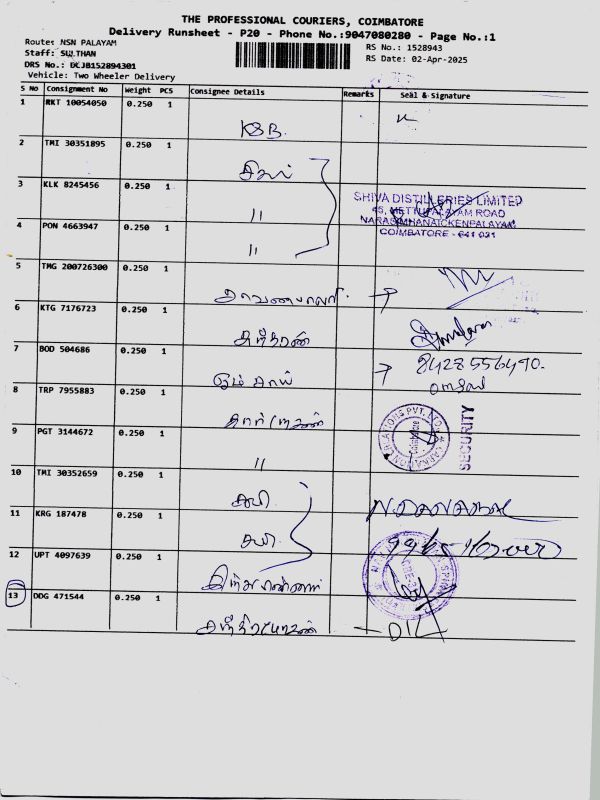 THE PROFESSIONAL COURIERS, COIMBATORE
Delivery Runsheet - P20 - Phone No.:9047080280 - Page No.:1
Route: NSN PALAYAM
Staff: SULTHAN
DRS No.: DCJB152894301
Vehicle: Two Wheeler Delivery
RS No.: 1528943
RS Date: 02-Apr-2025
S No Consignment No Weight PCS Consignee Details Remarks Seal & Signature
1 RKT 10054050 0.250 1 KSB.
2 TMI 30351895 0.250 1 சிவா
3 KLK 8245456 0.250 1 〃
SHIVA DISTILLERIES LIMITED
45, METTUPALAYAM ROAD
NARASIMHANAICKENPALAYAM
COIMBATORE - 641 031
4 PON 4663947 0.250 1 〃
5 TMG 200726300 0.250 1
6 KTG 7176723 0.250 1
7 BOD 504686 0.250 1 ஓம் சாய் 8428556490.
omsai
8 TRP 7955883 0.250 1
SECURITY
9 PGT 3144672 0.250 1 〃
10 TMI 30352659 0.250 1
11 KRG 187478 0.250 1
12 UPT 4097639 0.250 1
13 DDG 471544 0.250 1